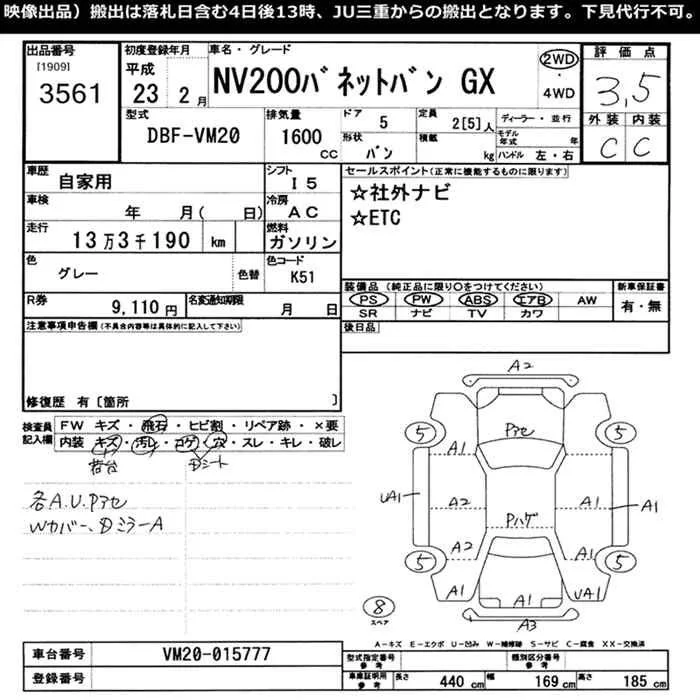 映像出品）搬出は落札日含む4日後13時、JU三重からの搬出となります。下見代行不可。
出品番号
[1909]
3561
初度登録年月
平成
23 2月
車名・グレード
NV200バネットバン GX
2WD
・
4WD
評価点
3,5
外装 内装
C C
型式
DBF-VM20
排気量
1600
CC
ドア
5
形状
バン
定員
2[5]人
積載
kg
ディーラー・並行
モデル
年式 年
ハンドル 左・右
車歴
自家用
シフト
I5
車検
年 月( 日)
冷房
AC
走行
13万3千190 km
燃料
ガソリン
色
グレー
色替
色コード
K51
R券
9,110円
名変通知期限
月 日
セールスポイント(正常に機能するものに限ります)
☆社外ナビ
☆ETC
装備品(純正品に限り○をつけてください)
PS PW ABS エアB AW
SR ナビ TV カワ
新車保証書
有・無
後日品
注意事項申告欄(不具合内容等は具体的に記入して下さい)
修復歴 有〔箇所 〕
検査員
記入欄
FW キズ・飛石・ヒビ割・リペア跡・×要
内装・キズ・汚レ・コゲ・穴・スレ・キレ・破レ
荷台
シート
各A.U.Pアセ
Wカバー、ミラーA
A2
Pアセ
5 5
A1 A1
UA1 A2 A1 A1
Pハゲ
A2 A1
5 5
A1 A1 UA1
8
スペア
A3
A-キズ E-エクボ U-凹み W-補修跡 S-サビ C-腐食 XX-交換済
車台番号
VM20-015777
登録番号
型式指定番号
参考
類別区分番号
参考
車庫証明用
参考
長さ 440cm 幅 169cm 高さ 185cm